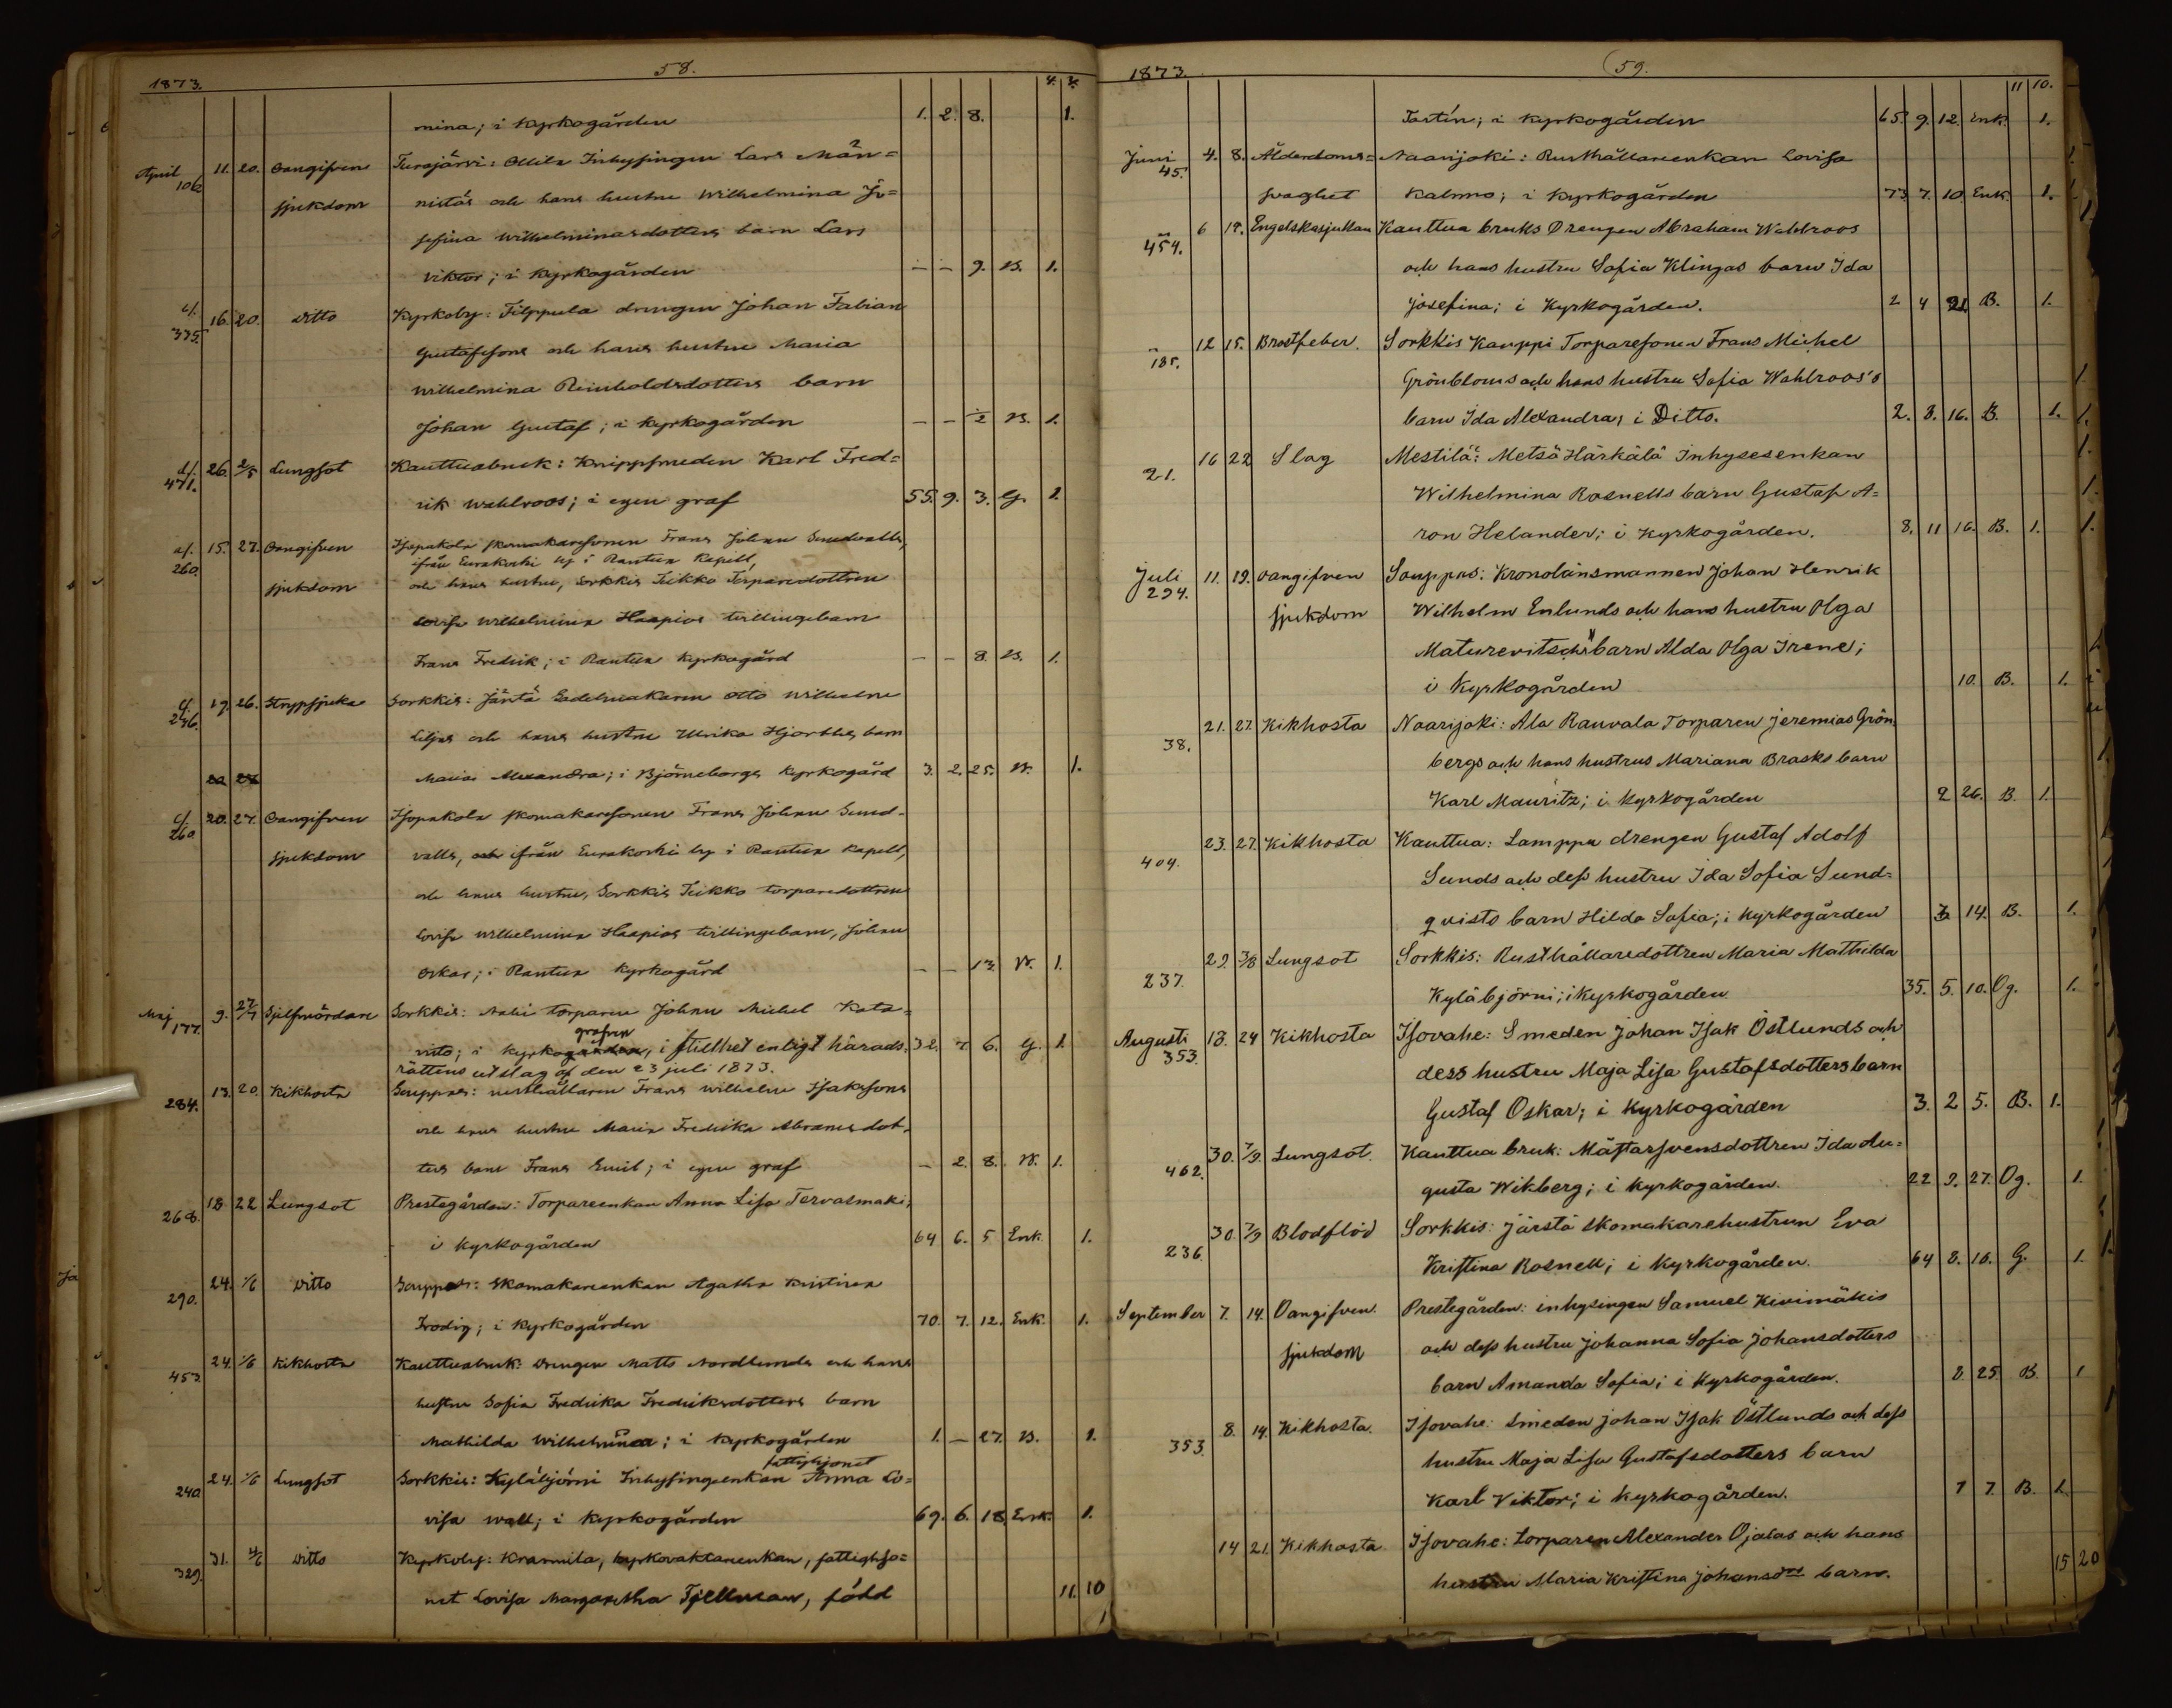 1873. 58. 4. 3.
mina; i Kyrkogården 1. 2. 8. 1.
April 106 11. 20. Oangifven Turajärvi: Ollila Inhysingen Lars Män=
sjukdom nistös och hans hustru Wilhelmina Jo=
sefina Wilhelminasdotters barn Lars
Viktor; i Kyrkogården — — 9. B. 1.
335. 16. 20. ditto Kyrkoby: Filppula drengen Johan Fabian
Gustafssons och hans hustru Maria
Wilhelmina Reinholdsdotters barn
Johan Gustaf; i Kyrkogården — — ½ B. 1.
471. 26. 2/5 Lungsot Kauttuabruk: Knippsmeden Karl Fred=
rik Wahlroos; i egen graf 55. 9. 3. G. 1.
260. 15. 27. Oangifven skomakaresonen Frans Johan Sundvalls,
ifrån Eurakoski by i Rantua Kapell,
sjukdom och hans hustru, Sorkkis Teikko Torparedottren
Lovisa Wilhelmina Haapios tvillingebarn
Frans Fredrik; i Rantua Kyrkogård — — 8. B. 1.
246. 19. 26. Strypsjuka Sorkkis: Järstä Sadelmakaren Otto Wilhelm
Liljas och hans hustru Ulrika Hjorthes barn
Maria Alexandra; i Björneborgs Kyrkogård 3. 2. 25. B. 1.
260. 20. 27. Oangifven skomakaresonen Frans Johan Sund=
sjukdom valls, ifrån Eurakoski by i Rantua Kapell,
och hans hustru, Sorkkis Teikko torparedottren
Lovisa Wilhelmina Haapios tvillingebarn, Johan
Oskar; i Rantua Kyrkogård — — 13. B. 1.
Maj 177. 9. 27/7 Sjelfmördare Sorkkis: torparen Johan Michel Kata=
grafven
visto; i Kyrkogården, i stillhet enligt härads= 32. 7. 6. G. 1.
rättens utslag af den 23 juli 1873.
284. 13. 20. Kikhosta Souppas: rusthållaren Frans Wilhelm Isakssons
och hans hustru Maria Fredrika Abramsdot=
ters barn Frans Emil; i egen graf — 2. 8. B. 1.
268. 18 22 Lungsot Prestegården: Torpareenkan Anna Lisa Tervasmäki;
i Kyrkogården 64 6. 5 Enk. 1.
290. 24. 1/6 ditto Souppas: Skomakareenkan Agatha Kristina
Frodig; i Kyrkogården 70. 7. 12. Enk. 1.
453. 24. 1/6 Kikhosta Kauttuabruk: Drengen Matts Nordlunds och hans
hustru Sofia Fredrika Fredriksdotters barn
Mathilda Wilhelmina; i Kyrkogården 1. — 27. B. 1.
fattighjonet
240 24. 1/6 Lungsot Sorkkis: Kyläbjörni Inhysingeenkan Anna Lo=
visa Wall; i Kyrkogården 69. 6. 18. Enk. 1.
329. 31. 4/6 ditto Kyrkoby: Kraamila, kyrkovaktareenkan, fattighjo=
net Lovisa Margaretha Tjellman, född
11. 10
1873. 59. 11 10.
Tastin; i Kyrkogården 65. 9. 12. Enk. 1.
Juni 45. 4. 8. Ålderdoms= Naarijoki: Rusthållareenkan Lovisa
svaghet Kalmo; i Kyrkogården 73 7. 10 Enk. 1.
454. 6 12. Engelskasjukan Kauttua bruks Drengen Abraham Wahlroos
och hans hustru Sofia Klingas barn Ida
Josefina; i Kyrkogården. 2 4 21. B. 1.
185. 12 15. Bröstfeber. Sorkkis Kauppi Torparesonen Frans Michel
Grönbloms och hans hustru Sofia Wahlroos's
barn Ida Alexandra; i Ditto. 2. 8. 16. B. 1.
21. 16 22 Slag Mestilä: Metsä Härkälä Inhysesenkan
Wilhelmina Rosnells barn Gustaf A=
ron Helander; i Kyrkogården. 8. 11 16. B. 1.
Juli 294. 11. 19. oangifven Souppas: Kronolänsmannen Johan Henrik
sjukdom Wilhelm Enlunds och hans hustru Olga
Maturevitsch's barn Alda Olga Irene;
i Kyrkogården 10. B. 1.
38. 21. 27. Kikhosta Naarijoki: Ala Rauvala Torparen Jeremias Grön
bergs och hans hustrus Mariana Brasks barn
Karl Mauritz; i Kyrkogården 2 26. B. 1.
404. 23. 27. Kikhosta Kauttua: Lamppu drengen Gustaf Adolf
Lunds och dess hustru Ida Sofia Lund=
qvists barn Hilda Sofia; i Kyrkogården 3 14. B. 1.
237. 29. 3/8 Lungsot Sorkkis: Rusthållaredottren Maria Mathilda
Kyläbjörni; i Kyrkogården 35. 5. 10. Og. 1.
Augusti 353. 18. 24 Kikhosta Isovahe: Smeden Johan Isak Östlunds och
dess hustru Maja Lisa Gustafsdotters barn
Gustaf Oskar; i Kyrkogården 3. 2 5. B. 1.
462. 30. 7/9. Lungsot. Kauttua bruk: Mästarsvensdottren Ida Au=
gusta Wikberg; i Kyrkogården. 22 9. 27. Og. 1.
236. 30. 7/9 Blodflöd Sorkkis: Järstä skomakarehustrun Eva
Kristina Rosnell; i Kyrkogården. 64 8. 16. G. 1.
September 7. 14. Oangifven Prestegården: inhysingen Samuel Kivimäkis
sjukdom och dess hustru Johanna Sofia Johansdotters
barn Amanda Sofia; i Kyrkogården. 8. 25 B. 1
353. 8. 14. Kikhosta. Isovahe: Smeden Johan Isak Östlunds och dess
hustru Maja Lisa Gustafsdotters barn
Karl Viktor; i Kyrkogården. 7 7. B. 1.
14 21. Kikhosta Isovahe: Torparen Alexander Ojalas och hans
hustru Maria Kristina Johansdrs barn.
15 20